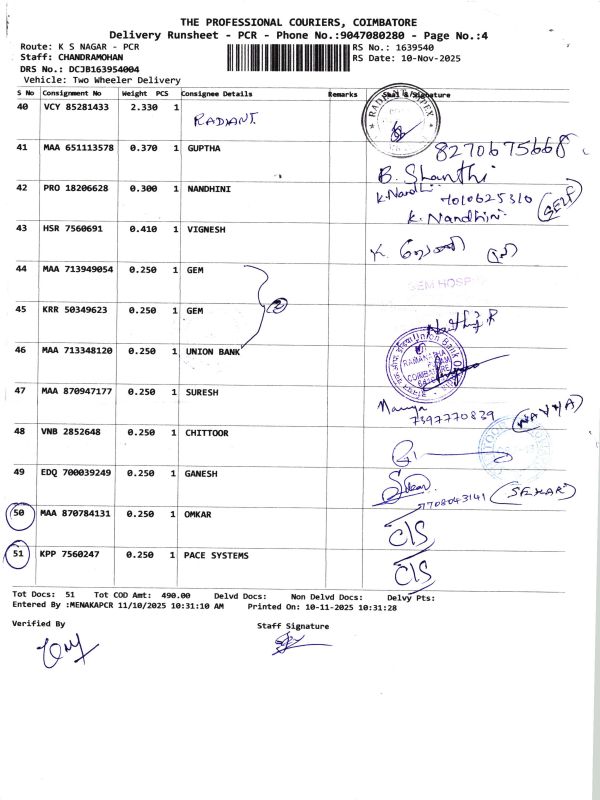 THE PROFESSIONAL COURIERS, COIMBATORE
Delivery Runsheet - PCR - Phone No.:9047080280 - Page No.:4
Route: K S NAGAR - PCR RS No.: 1639540
Staff: CHANDRAMOHAN RS Date: 10-Nov-2025
DRS No.: DCJB163954004
Vehicle: Two Wheeler Delivery
S No Consignment No Weight PCS Consignee Details Remarks Seal & Signature
40 VCY 85281433 2.330 1 RADIANT
41 MAA 651113578 0.370 1 GUPTHA 8270675668
B. Shanthi
42 PRO 18206628 0.300 1 NANDHINI K. Nandhi 7010625310
K. Nandhini (SELF)
43 HSR 7560691 0.410 1 VIGNESH
44 MAA 713949054 0.250 1 GEM GEM HOSP
45 KRR 50349623 0.250 1 GEM 2
46 MAA 713348120 0.250 1 UNION BANK Union Bank
47 MAA 870947177 0.250 1 SURESH
7397770839
48 VNB 2852648 0.250 1 CHITTOOR
49 EDQ 700039249 0.250 1 GANESH
7708043141 (SEKAR)
50 MAA 870784131 0.250 1 OMKAR C/S
51 KPP 7560247 0.250 1 PACE SYSTEMS C/S
Tot Docs: 51 Tot COD Amt: 490.00 Delvd Docs: Non Delvd Docs: Delvy Pts:
Entered By :MENAKAPCR 11/10/2025 10:31:10 AM Printed On: 10-11-2025 10:31:28
Verified By Staff Signature